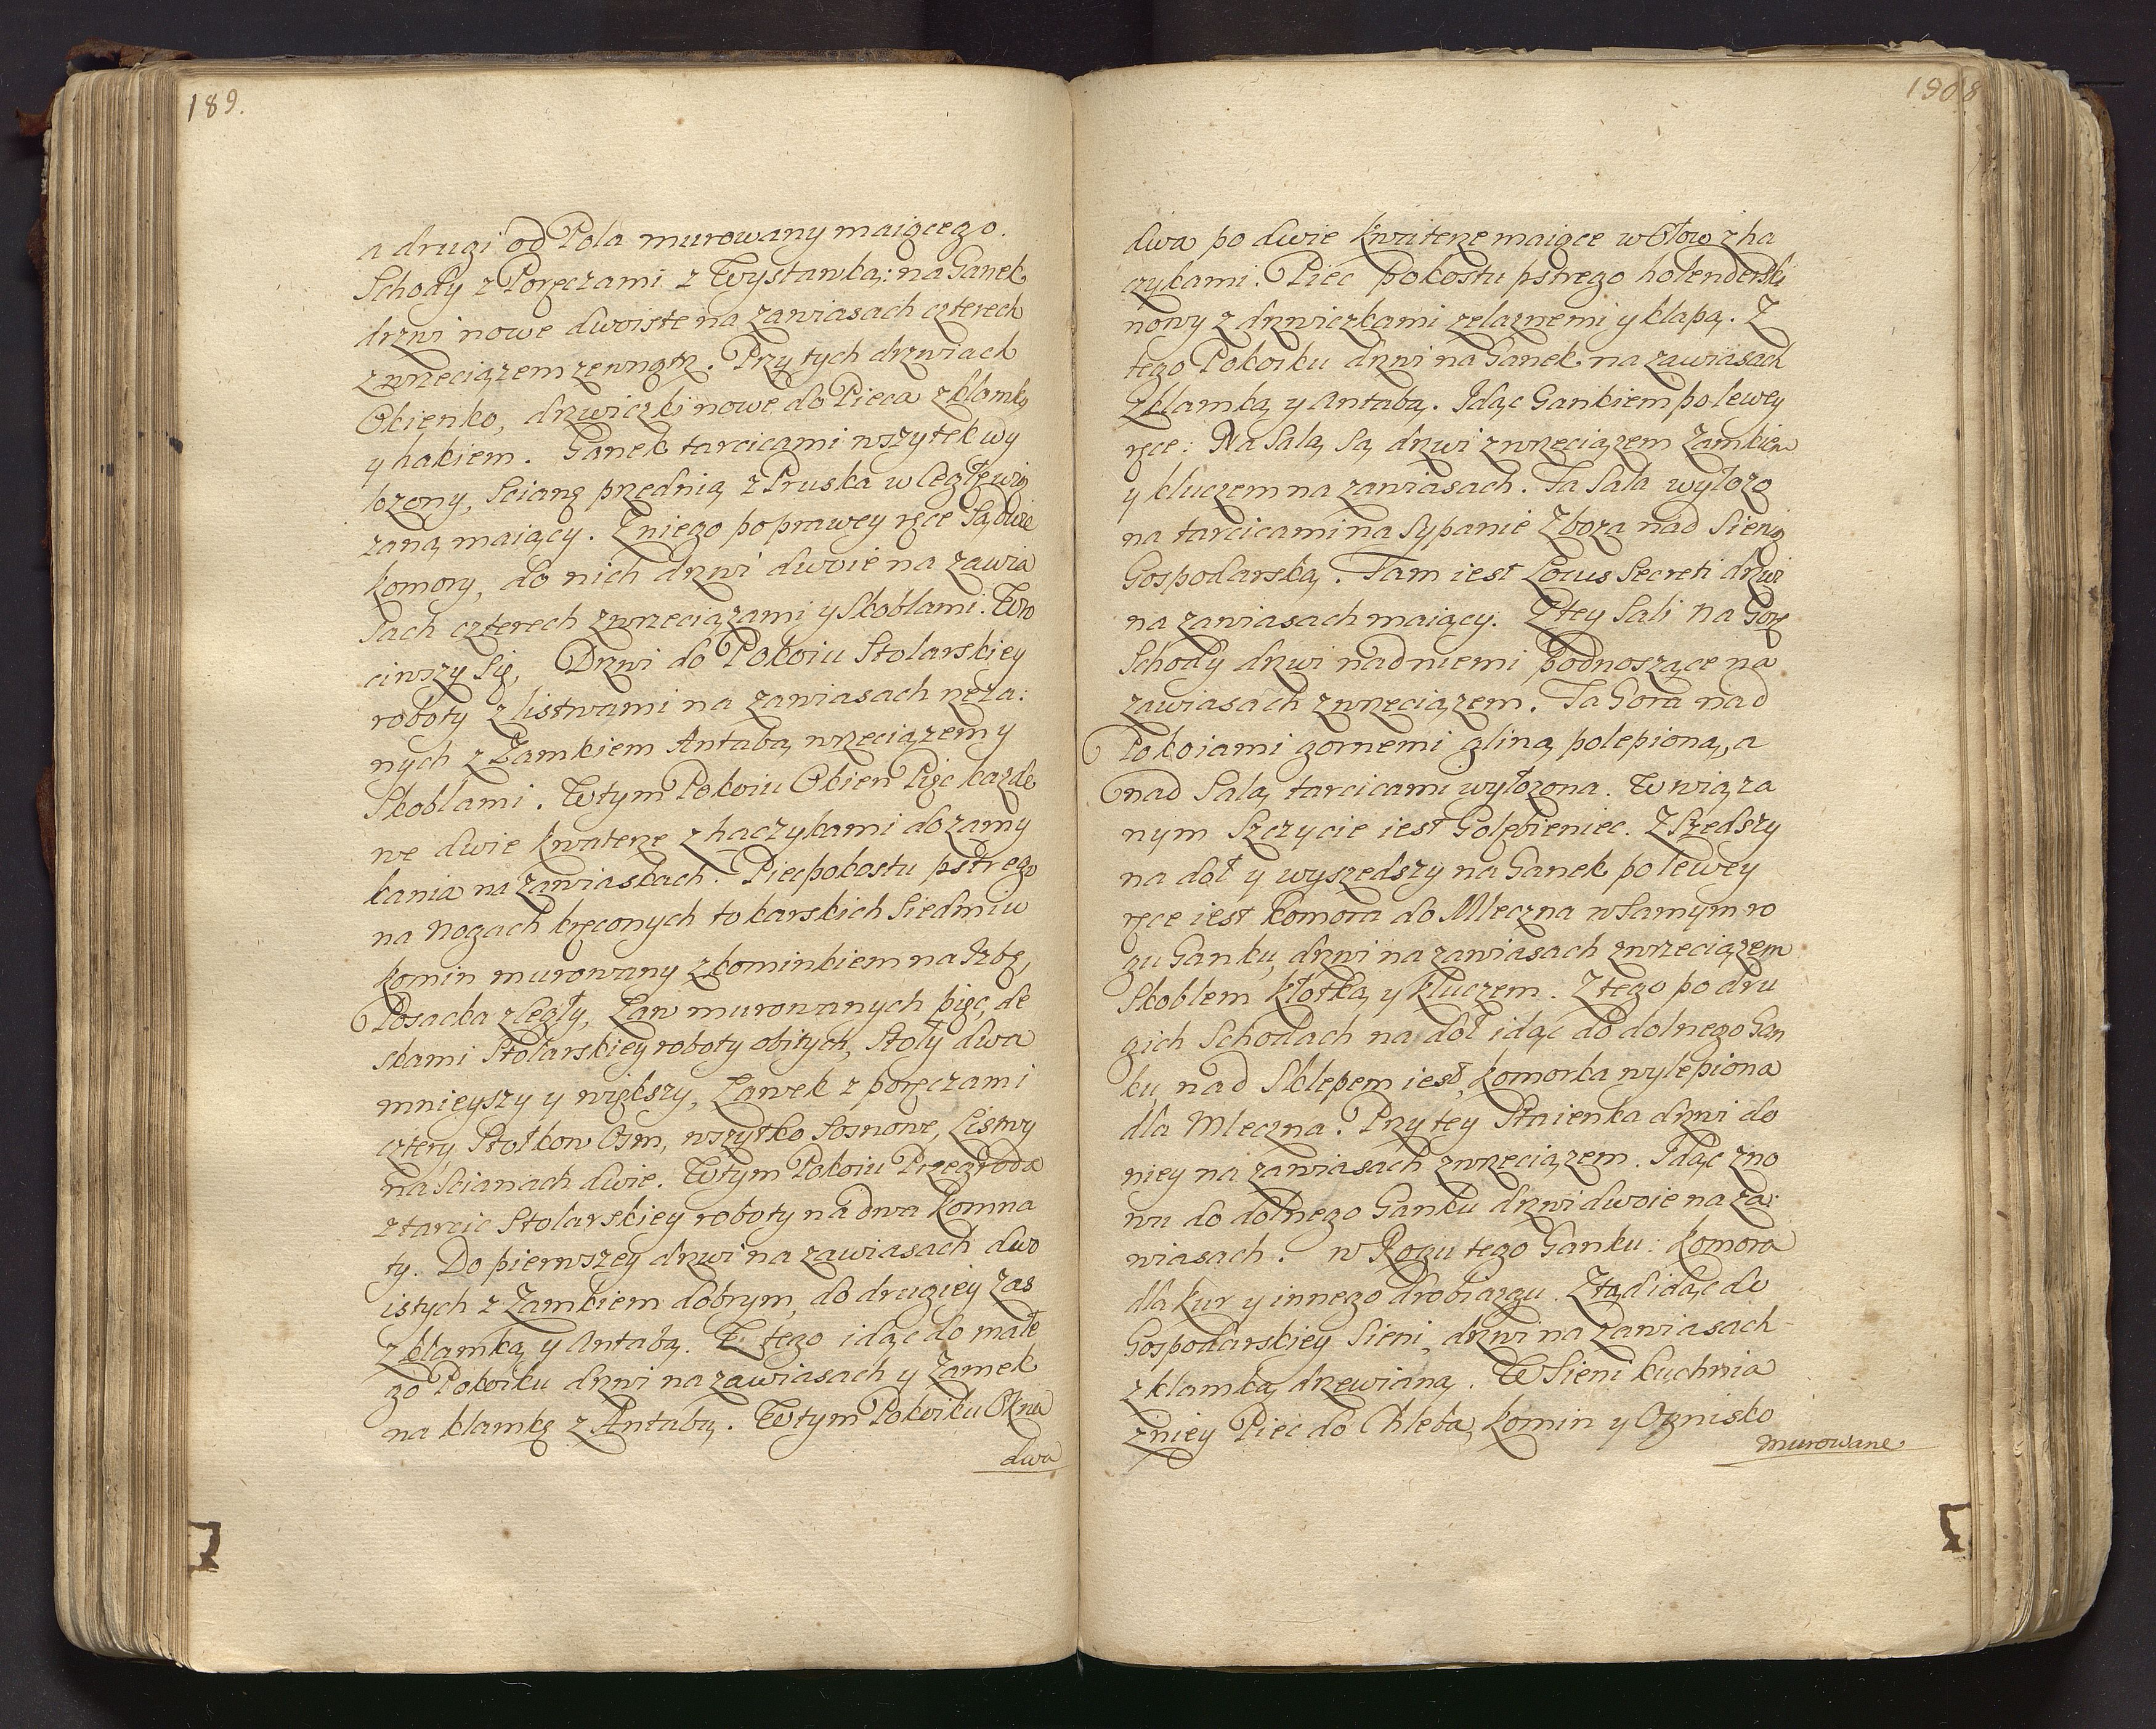 189.
a drugi od Pola murowany maiącego.
Schody z Poręczami z Wystawką: na Ganek
drzwi nowe dwoiste na zawiasach czterech
z wrzeciązem zewnątrz. Przy tych drzwiach
Okienko, drzwiczki nowe do Pieca z klamką
y hakiem. Ganek tarcicami wszytek wy
łozony, Scianę przednią z Pruska w Cegłę wią
zaną maiący. Z niego po prawey ręce Są dwie
komory, do nich drzwi dwoie na zawia
sach czterech z wrzeciązami y Skoblami. Wro
ciwszy Się, Drzwi do Pokoiu Stolarskiey
roboty z listwami na zawiasach rzeza:
nych z Zamkiem Antabą wrzeciązem y
Skoblami. W tym Pokoiu Okien Pięc kazde
we dwie kwaterze z haczykami do zamy
kania na zawiaskach. Piec pokostu pstrego
na nogach kręconych tokarskich Siedmiu
komin murowany z kominkiem na Izbę,
Posacka z Cegły, Law murowanych pięc, de
skami Stolarskiey roboty obitych, Stoły dwa
mnieyszy y większy, Lawek z poręczami
cztery Stołkow Osm, wszytko Sosnowe, Listwy
na Scianach dwie. W tym Pokoiu Przegroda
z tarcic Stolarskiey roboty na dwa komna
ty. Do pierwszey drzwi na zawiasach dwo
istych z Zamkiem dobrym, do drugiey zas
z klamką y Antabą. Z tego idąc do małe
go Pokoiku drzwi na zawiasach y Zamek
na klamkę z Antabą. W tym Pokoiku Okna
dwa
190
dwa po dwie kwaterze maiące w Ołow z ha
czykami. Piec pokostu pstrego holenderski
nowy z drzwiczkami zelaznemi y klapą. Z
tego Pokoiku drzwi na Ganek na zawiasach
z klamką y Antabą. Idąc Gankiem po lewey
ręce: Na Salą Są drzwi z wrzeciązem Zamkiem
y kluczem na zawiasach. Ta Sala wyłozo
na tarcicami na Sypanie Zboza nad Sienią
Gospodarską. Tam iest Locus Secreti drzwi
na zawiasach maiący. Z tey Sali na Gorę
Schody drzwi nad niemi podnoszące na
zawiasach z wrzeciązem. Ta Gora nad
Pokojami gornemi gliną polepioną, a
nad Salą tarcicami wyłozona. W wiąza
nym Szczycie iest Gołębieniec. Z Szedszy
na doł y wyszedszy na Ganek po lewey
ręce iest komora do Mleczna w Samym ro
gu Ganku, drzwi na zawiasach z wrzeciązem
Skoblem kłotką y kluczem. Z tego po dru
gich Schodach na doł idąc do dolnego Gan
ku nad Sklepem iest komorka wylepiona
dla Mleczna. Przy tey Staienka drzwi do
niey na zawiasach z wrzeciązem. Idąc zno
wu do dolnego Ganku drzwi dwoie na za:
wiasach. w Rogu tego Ganku: komora
dla kur y innego drobiazgu. Ztąd idąc do
Gospodarskiey Sieni, drzwi na zawiasach
z klamką drzewianą. W Sieni kuchnia
z niey Piec do Chleba, komin y Ognisko
murowane